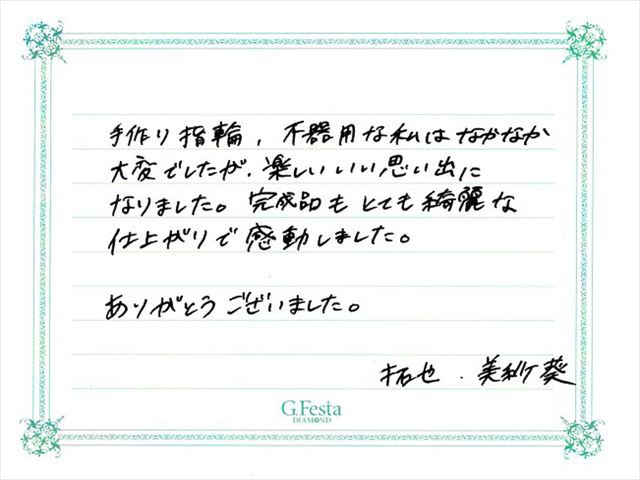 手作り指輪、不器用な私はなかなか
大変でしたが、楽しいいい思い出に
なりました。完成品もとても綺麗な
仕上がりで感動しました。
ありがとうございました。
拓也．美紗葵
G.Festa
DIAMOND